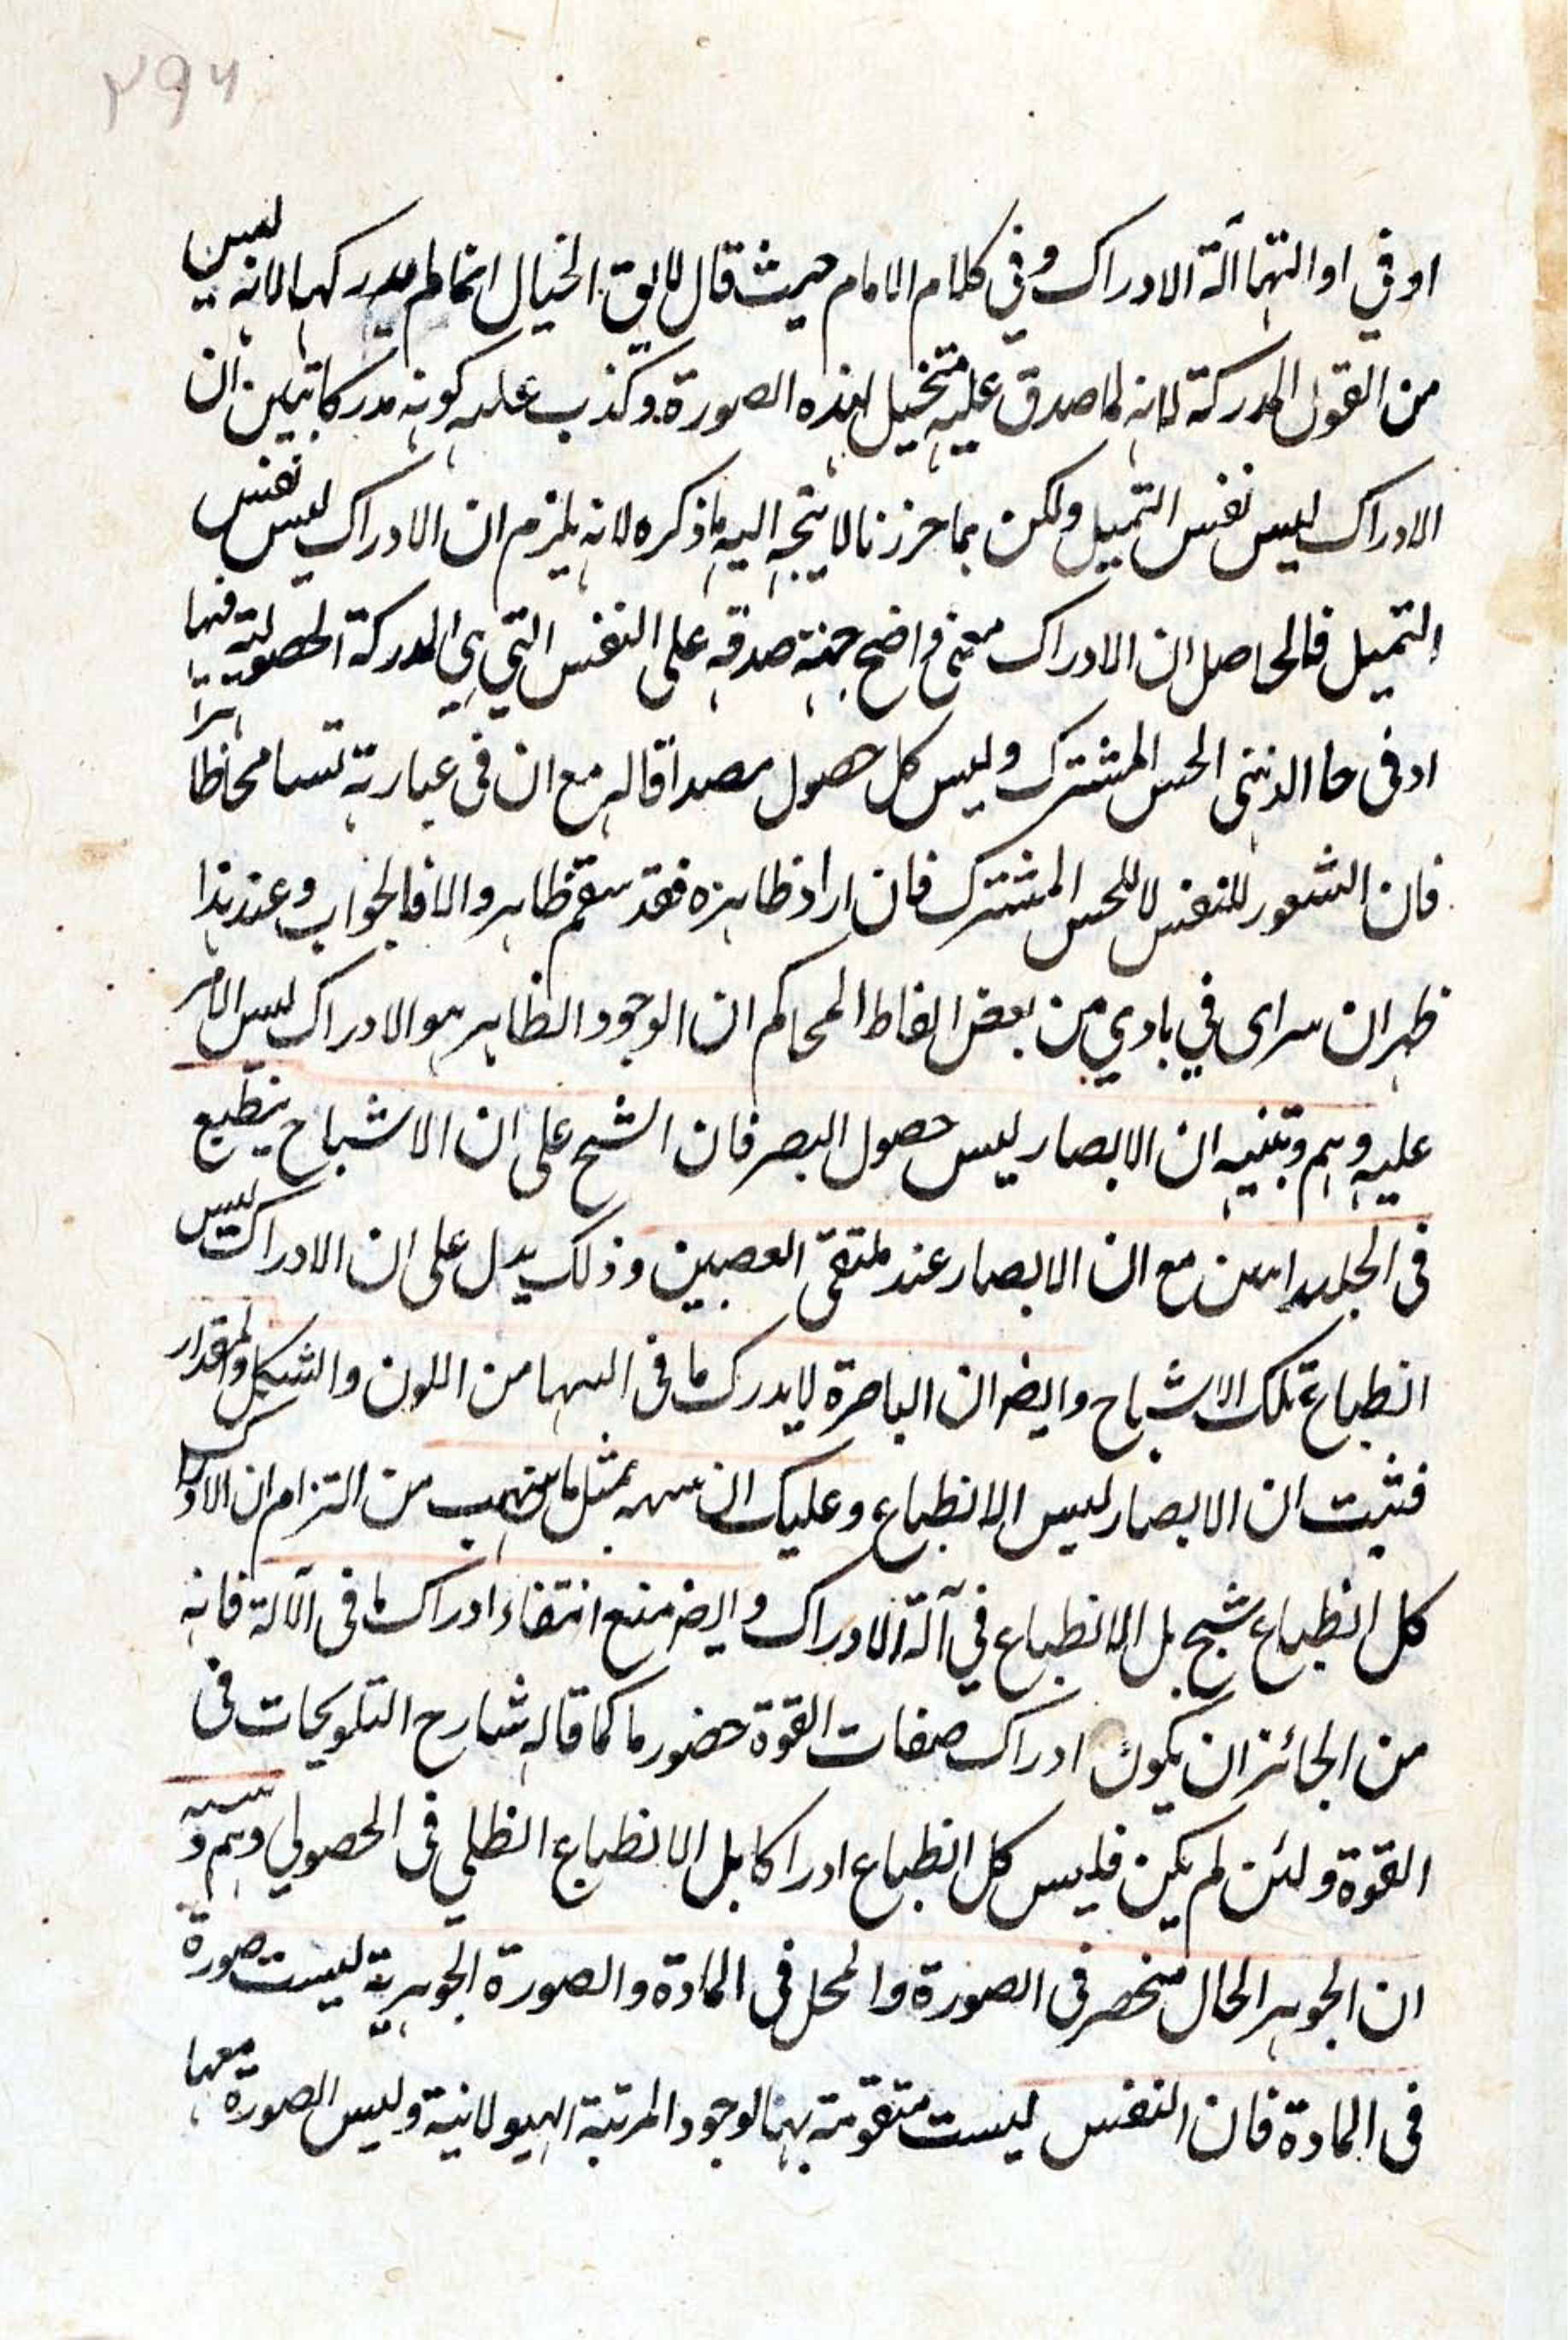 ٢٩٦
او في او التهما آلة الادراك وفي كلام الامام حيث قال لا يق الخيال انما لم يدركها لانه ليس
من القول المدركة لانه لما صدق عليه متخيل لهذه الصورة وكذب عليه كونه مدركا تبين ان
الادراك ليس نفس التميل ولكن بما حرزنا لا يتجه اليه ما ذكره لانه يلزم ان الادراك ليس نفس
التميل فالحاصل ان الادراك معنى واضح جهة صدقه على النفس التي هي المدركة الحصولية فيها
او في حا الذنى الحس المشترك وليس كل حصول مصداقا له مع ان في عبارته تسامحا ظاهرا
فان الشعور للنفس لا للحس المشترك فان اراد ظاهره فقد سقم ظاهر والا فالجواب وعند هذا
ظهر ان سراى في بادي من بعض الفاظ المحاكم ان الوجود الظاهر هو الادراك ليس الامر
عليه وهم وتنبيه ان الابصار ليس حصول البصر فان الشبح على ان الاشباح ينطبع
في مع ان الابصار عند ملتقى العصبين وذلك يدل على ان الادراك ليس
انطباع تلك الاشباح وايضا ان الباصرة لا يدرك ما في اليها من اللون والشكل والمقدار
فثبت ان الابصار ليس الانطباع وعليك ان بمثل ما من التزام ان الادراك
كل انطباع شبح بل الانطباع في آلة الادراك وايضا منع انتفاء ادراك ما في الآلة فانه
من الجائز ان يكون ادراك صفات القوة حضور ما كما قاله شارح التلويحات في
القوة ولئن لم يكن فليس كل انطباع ادراكا بل الانطباع الظلي في الحصولي وهم و
ان الجوهر الحال منحصر في الصورة والمحل في المادة والصورة الجوهرية ليست صورة
في المادة فان النفس ليست متقومة بها لوجود المرتبة الهيولانية وليس الصورة معها